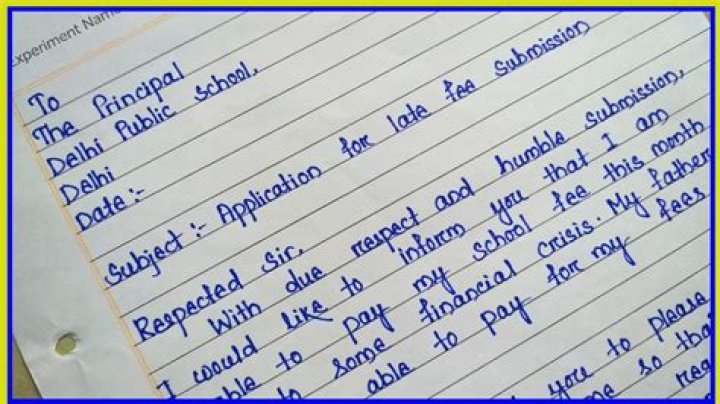 Experiment Name
To
The Principal
Delhi Public School,
Delhi
Date:-
Subject:- Application for late fee submission
Respected Sir,
With due respect and humble submission,
I would like to inform you that I am
able to pay my school fee this month
to some financial crisis. My father
able to pay for my fees
you to please
me so tha